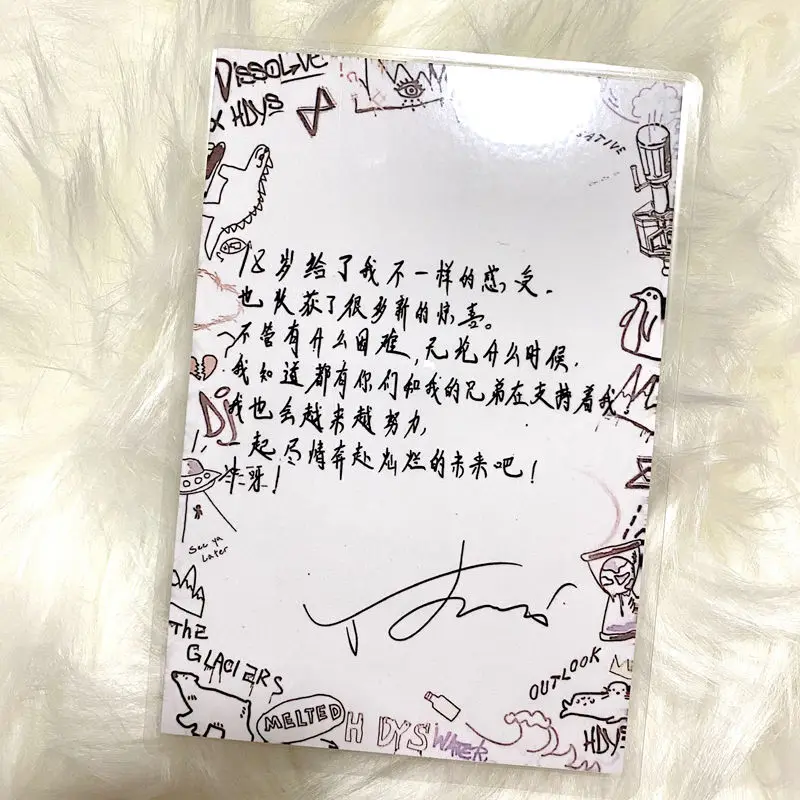 DISSOLVE
X HDYS
18岁给了我不一样的感受.
也收获了很多新的惊喜。
不管有什么困难,无论什么时候.
我知道都有你们和我的兄弟在支持着我!
我也会越来越努力,
一起尽情奔赴灿烂的未来吧!
冲呀!
Dj
See ya
Later
THE
GLACIERS
MELTED
HDYS
WATER
OUTLOOK
HDYS